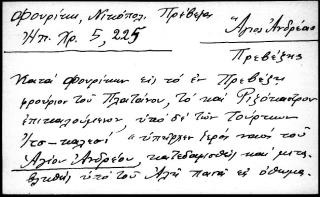 Φουρίκη, Νικόπολ. Πρέβεζα
Ἠπ. Χρ. 5, 225
Ἅγιος Ἀνδρέας
Πρεβέζης
Κατὰ Φουρίκην εἰς τὸ ἐν Πρεβέζῃ
φρούριον τοῦ Πλατάνου, τὸ καὶ Ριζόκαστρον
ἐπικαλούμενον ὑπὸ δὲ τῶν Τούρκων
Ἰτσ-καλεσί " ὑπῆρχεν ἱερὸς ναὸς τοῦ
Ἁγίου Ἀνδρέου, κατεδαφισθεὶς καὶ μετα-
βληθεὶς ὑπὸ τοῦ Ἀλῆ πασᾶ εἰς